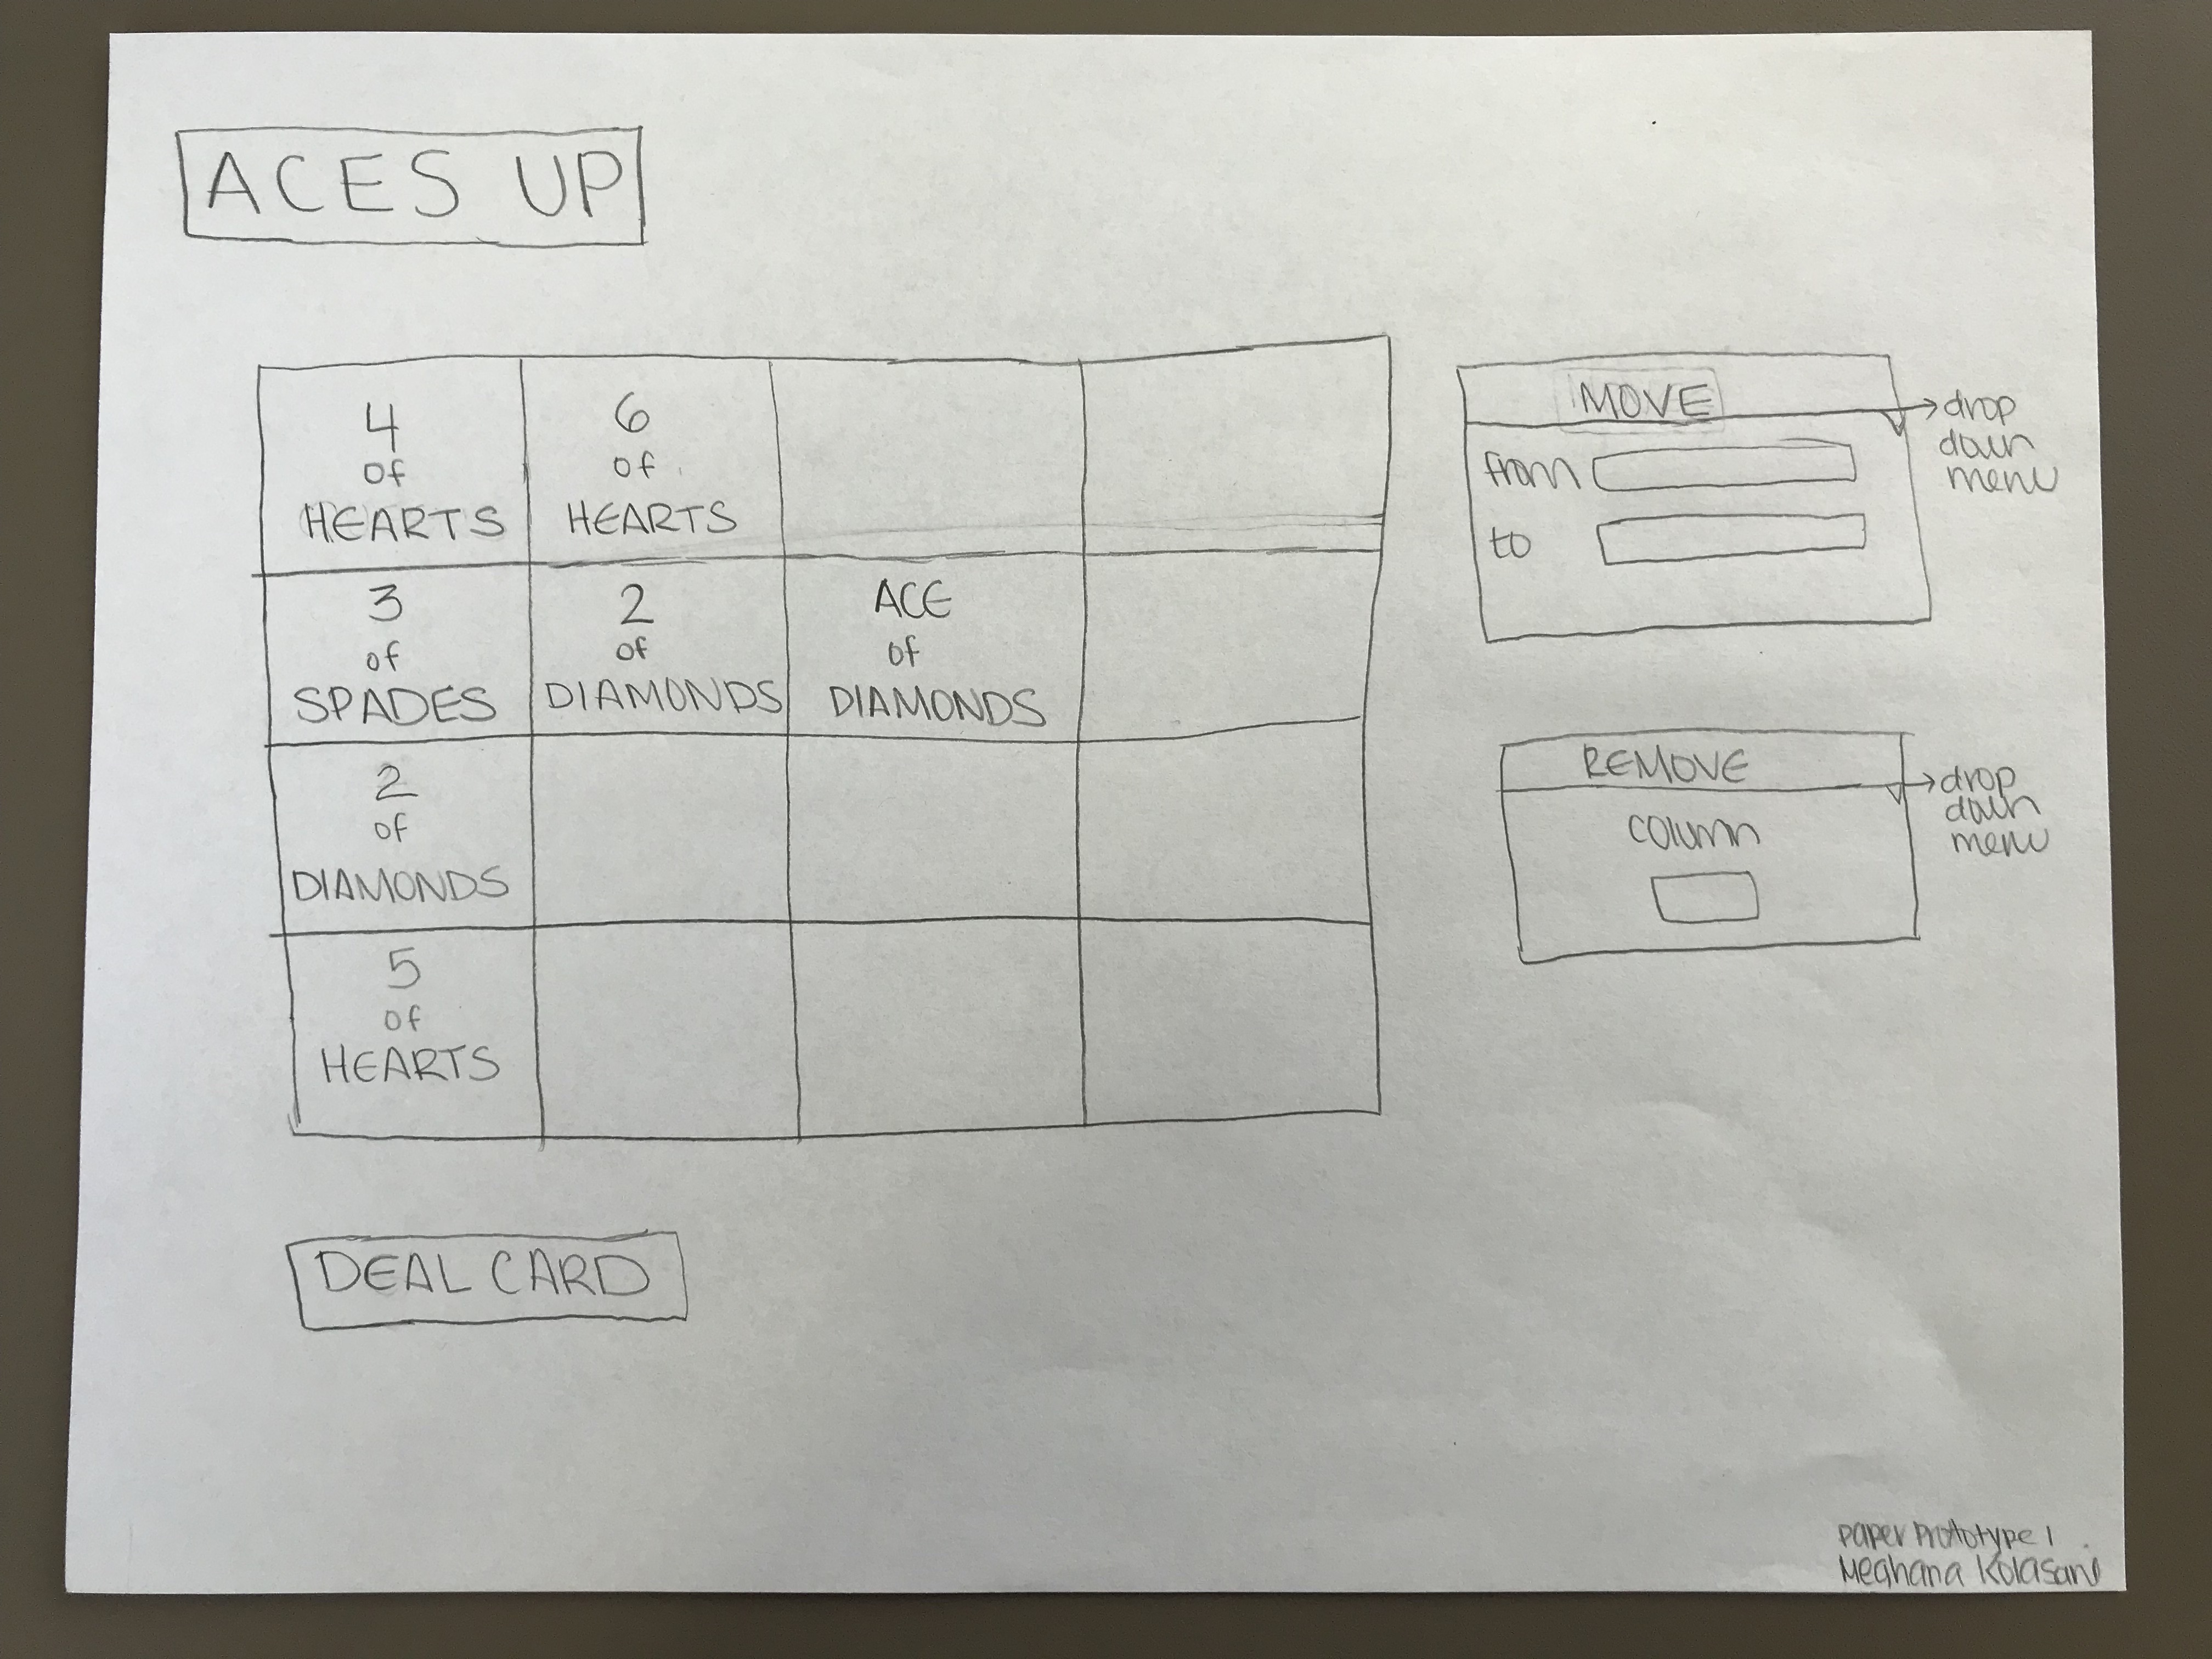 ACES UP
4
of
HEARTS
6
of
HEARTS
3
of
SPADES
2
of
DIAMONDS
ACE
of
DIAMONDS
2
of
DIAMONDS
5
of
HEARTS
MOVE
from
to
drop
down
menu
REMOVE
column
drop
down
menu
DEAL CARD
Paper Prototype 1
Meghana Kolasani